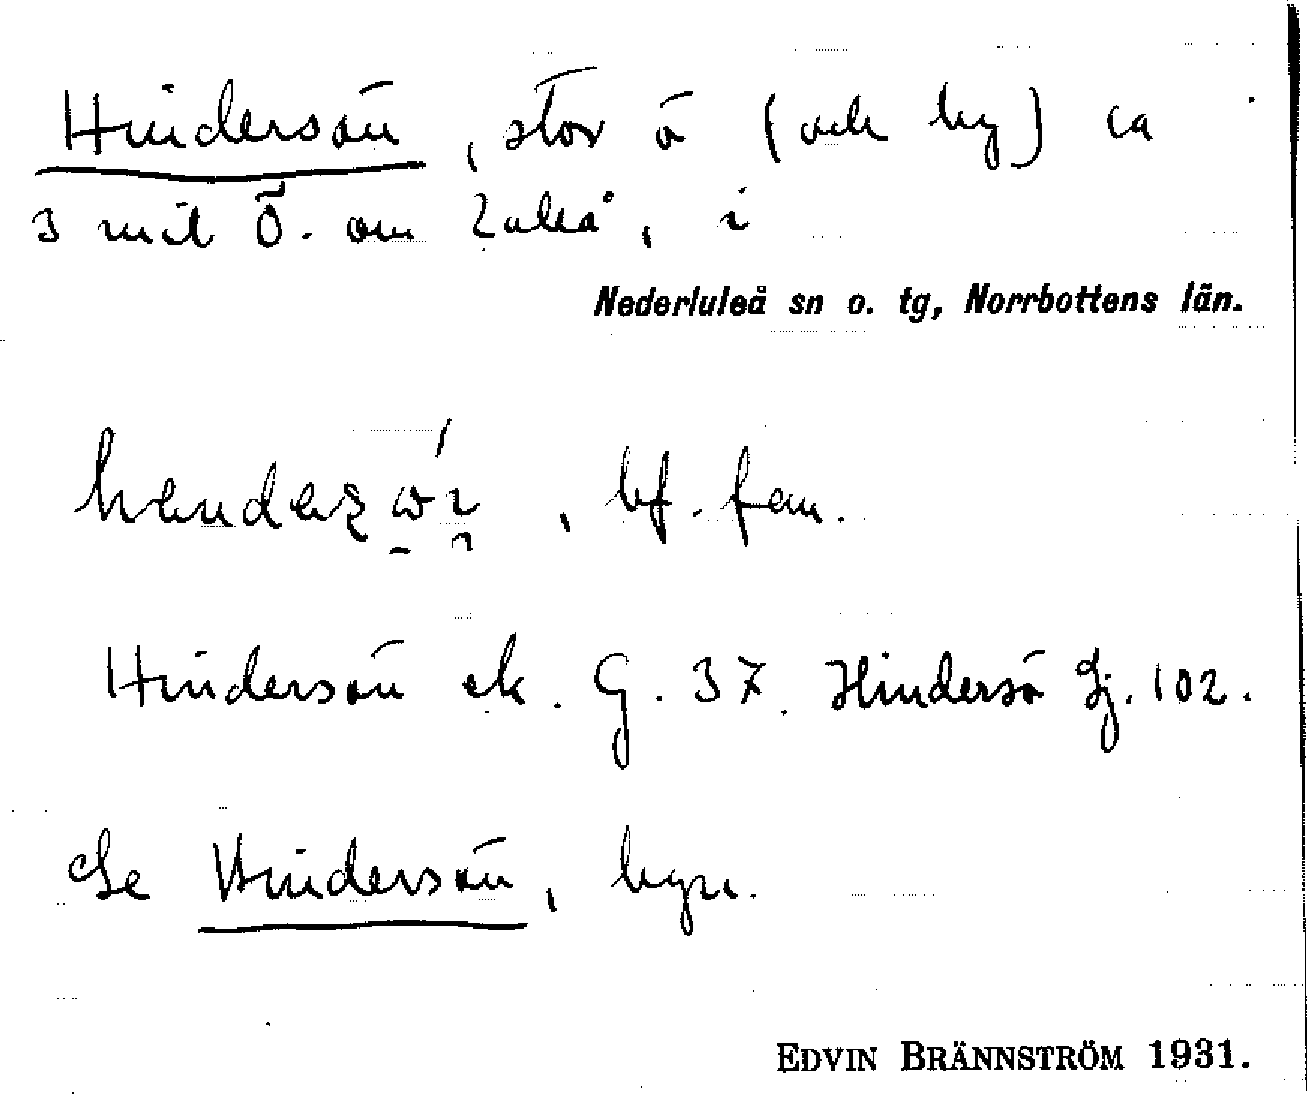 Hindersön, stor ö (och by) ca
3 mil Ö. om Luleå, i
Nederluleå sn o. tg, Norrbottens län.
, bf. fem.
Hindersön ek. G. 37. Hindersö Lj. 102.
Se Hindersön, byn.
EDVIN BRÄNNSTRÖM 1931.